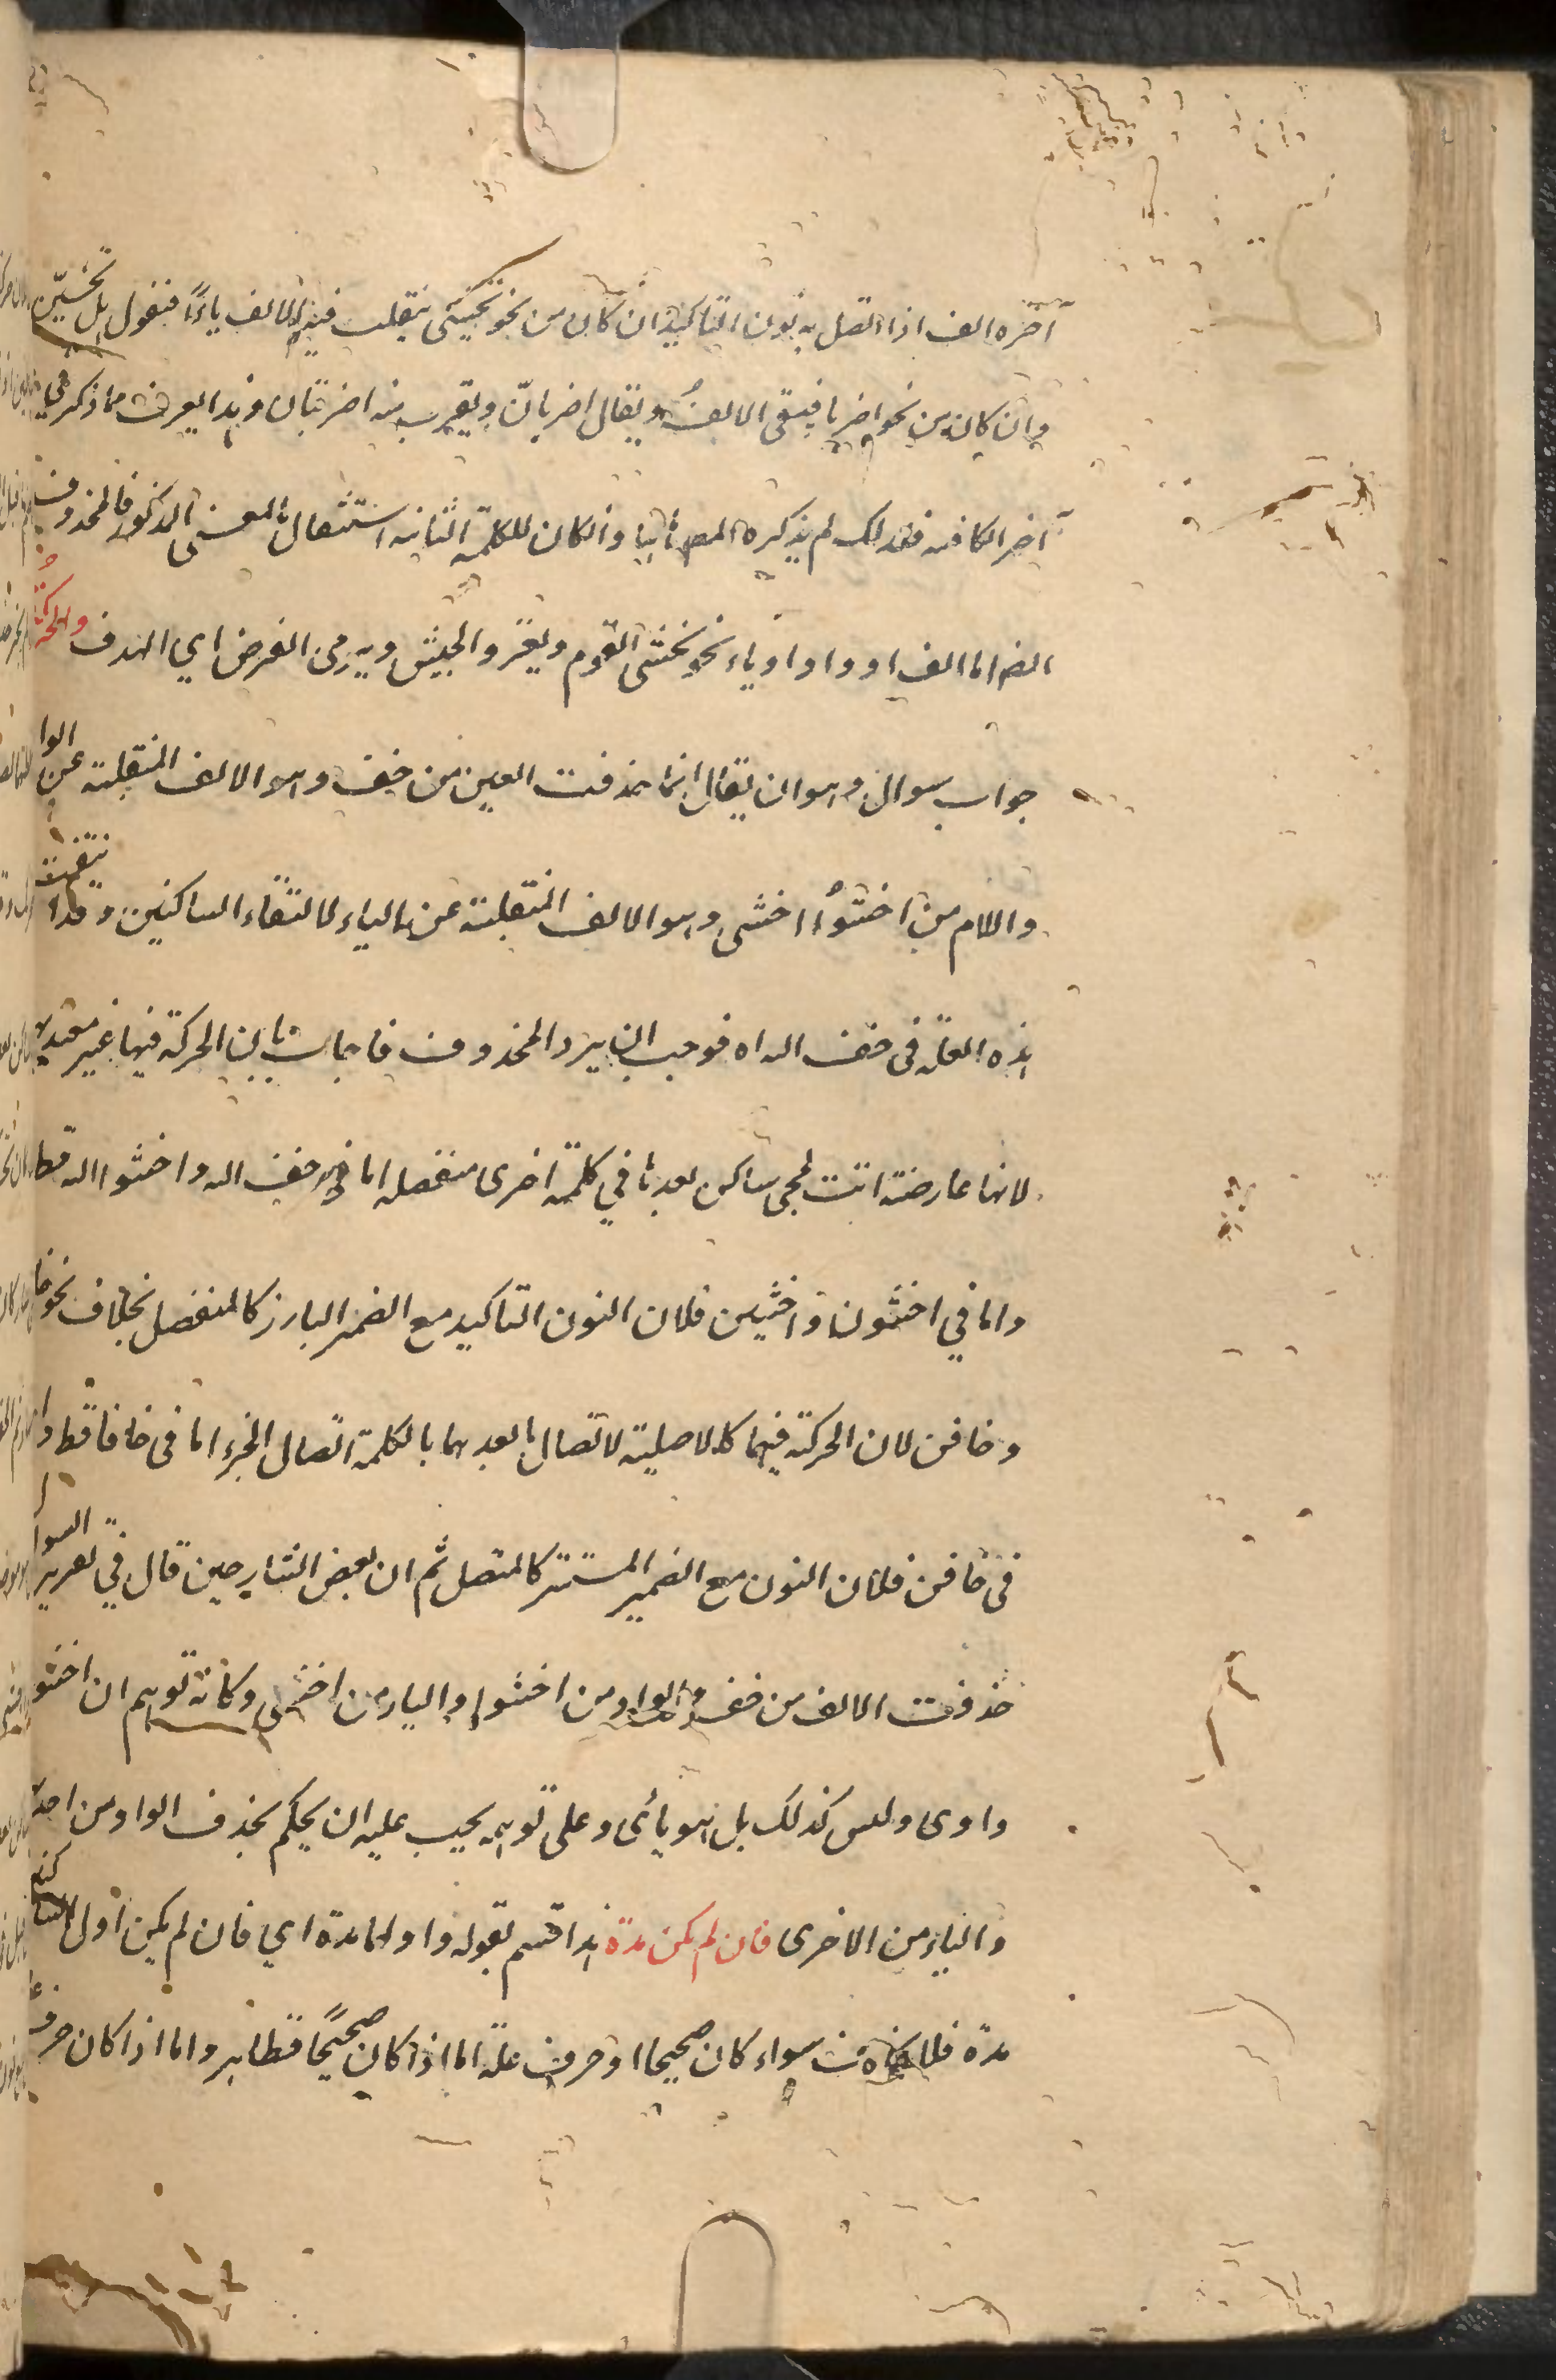 آخره الف اذا اتصل به نون التاكيد ان كان من نحو تخشى تقلب فيه الالف ياءً فتقول هل تخشينّ
وان كان من نحو اضربا فيبقى الالفُ ويقال اضربانّ ويقرب منه اضربنان وهذا يعرف مما ذكر في
آخر الكافيه فلذلك لم يذكره المص ثانيا وان كان للكلمة الثانيه استقلال بالمعنى المذكور فالمحذوف
ايضا اما الف او واو او ياء نحو يخشى القوم ويغزو الجيش ويرمى الغرض اي الهدف والحركة
جواب سوال وهو ان يقال انما حذفت العين من خف وهو الالف المنقلبة عن الوا
واللام من اخشوُا اخشى وهو الالف المنقلبة عن الياء لالتقاء الساكنين وقد انتفت
هذه العلة فى خف الله فوجب ان يرد المحذوف فاجاب بان الحركة فيها غير معتد بها
لانها عارضة اتت لمجى ساكن بعدها في كلمة اخرى منفصله اما في خف الله واخشوا الله فظا
واما في اخشون واخشين فلان النون التاكيد مع الضمير البارز كالمنفصل بخلاف نحو خافا
وخافن لان الحركة فيهما كالاصلية لاتصال ما بعدهما بالكلمة اتصال الجزء اما فى خافا فظ واما
فى خافن فلان النون مع الضمير المستتر كالمتصل ثم ان بعض الشارحين قال في تقرير السوال
حذفت الالف من خف والواو من اخشوا والياء من اخشى وكانه توهم ان اخشو
واوى وليس كذلك بل هو يأى وعلى توهمه يجب عليه ان يحكم بحذف الواو من احد
والياء من الاخرى فان لم يكن مدة هذا قسم لقوله واولهما مدة اي فان لم يكن اول الساكنين
مدة فلا حذف سواء كان صحيحا او حرف علة اما اذا كان صحيحًا فظاهر واما اذا كان حرف